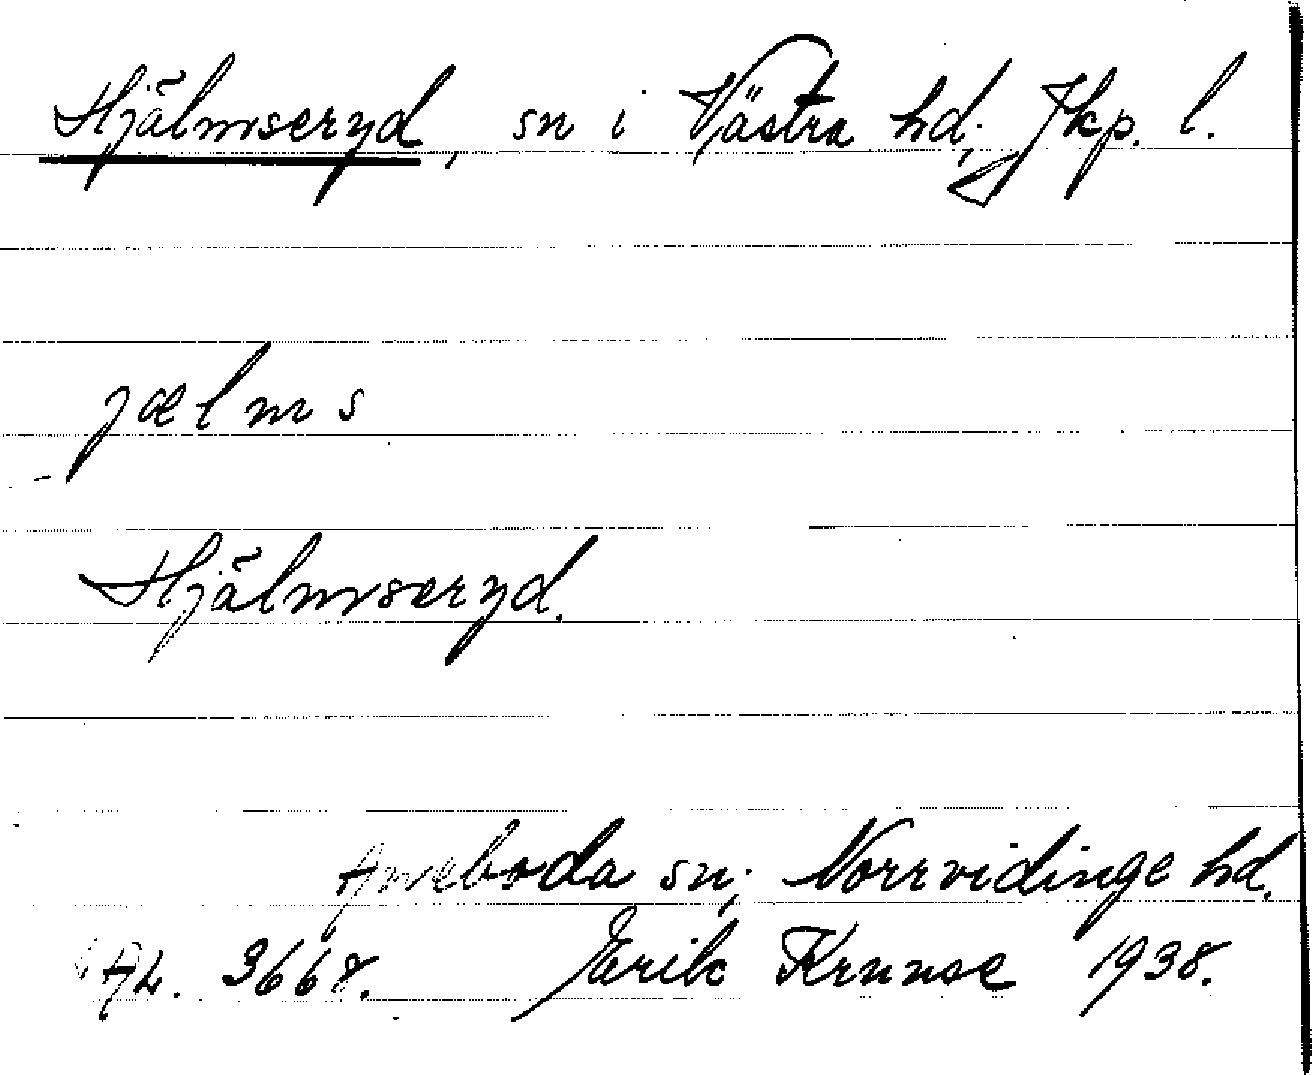 Hjälmseryd, sn i Västra hd; Jkp. l.
jælms
Hjälmseryd.
Aneboda sn; Norrvidinge hd.
AL. 3668. Erik Krunse 1938.